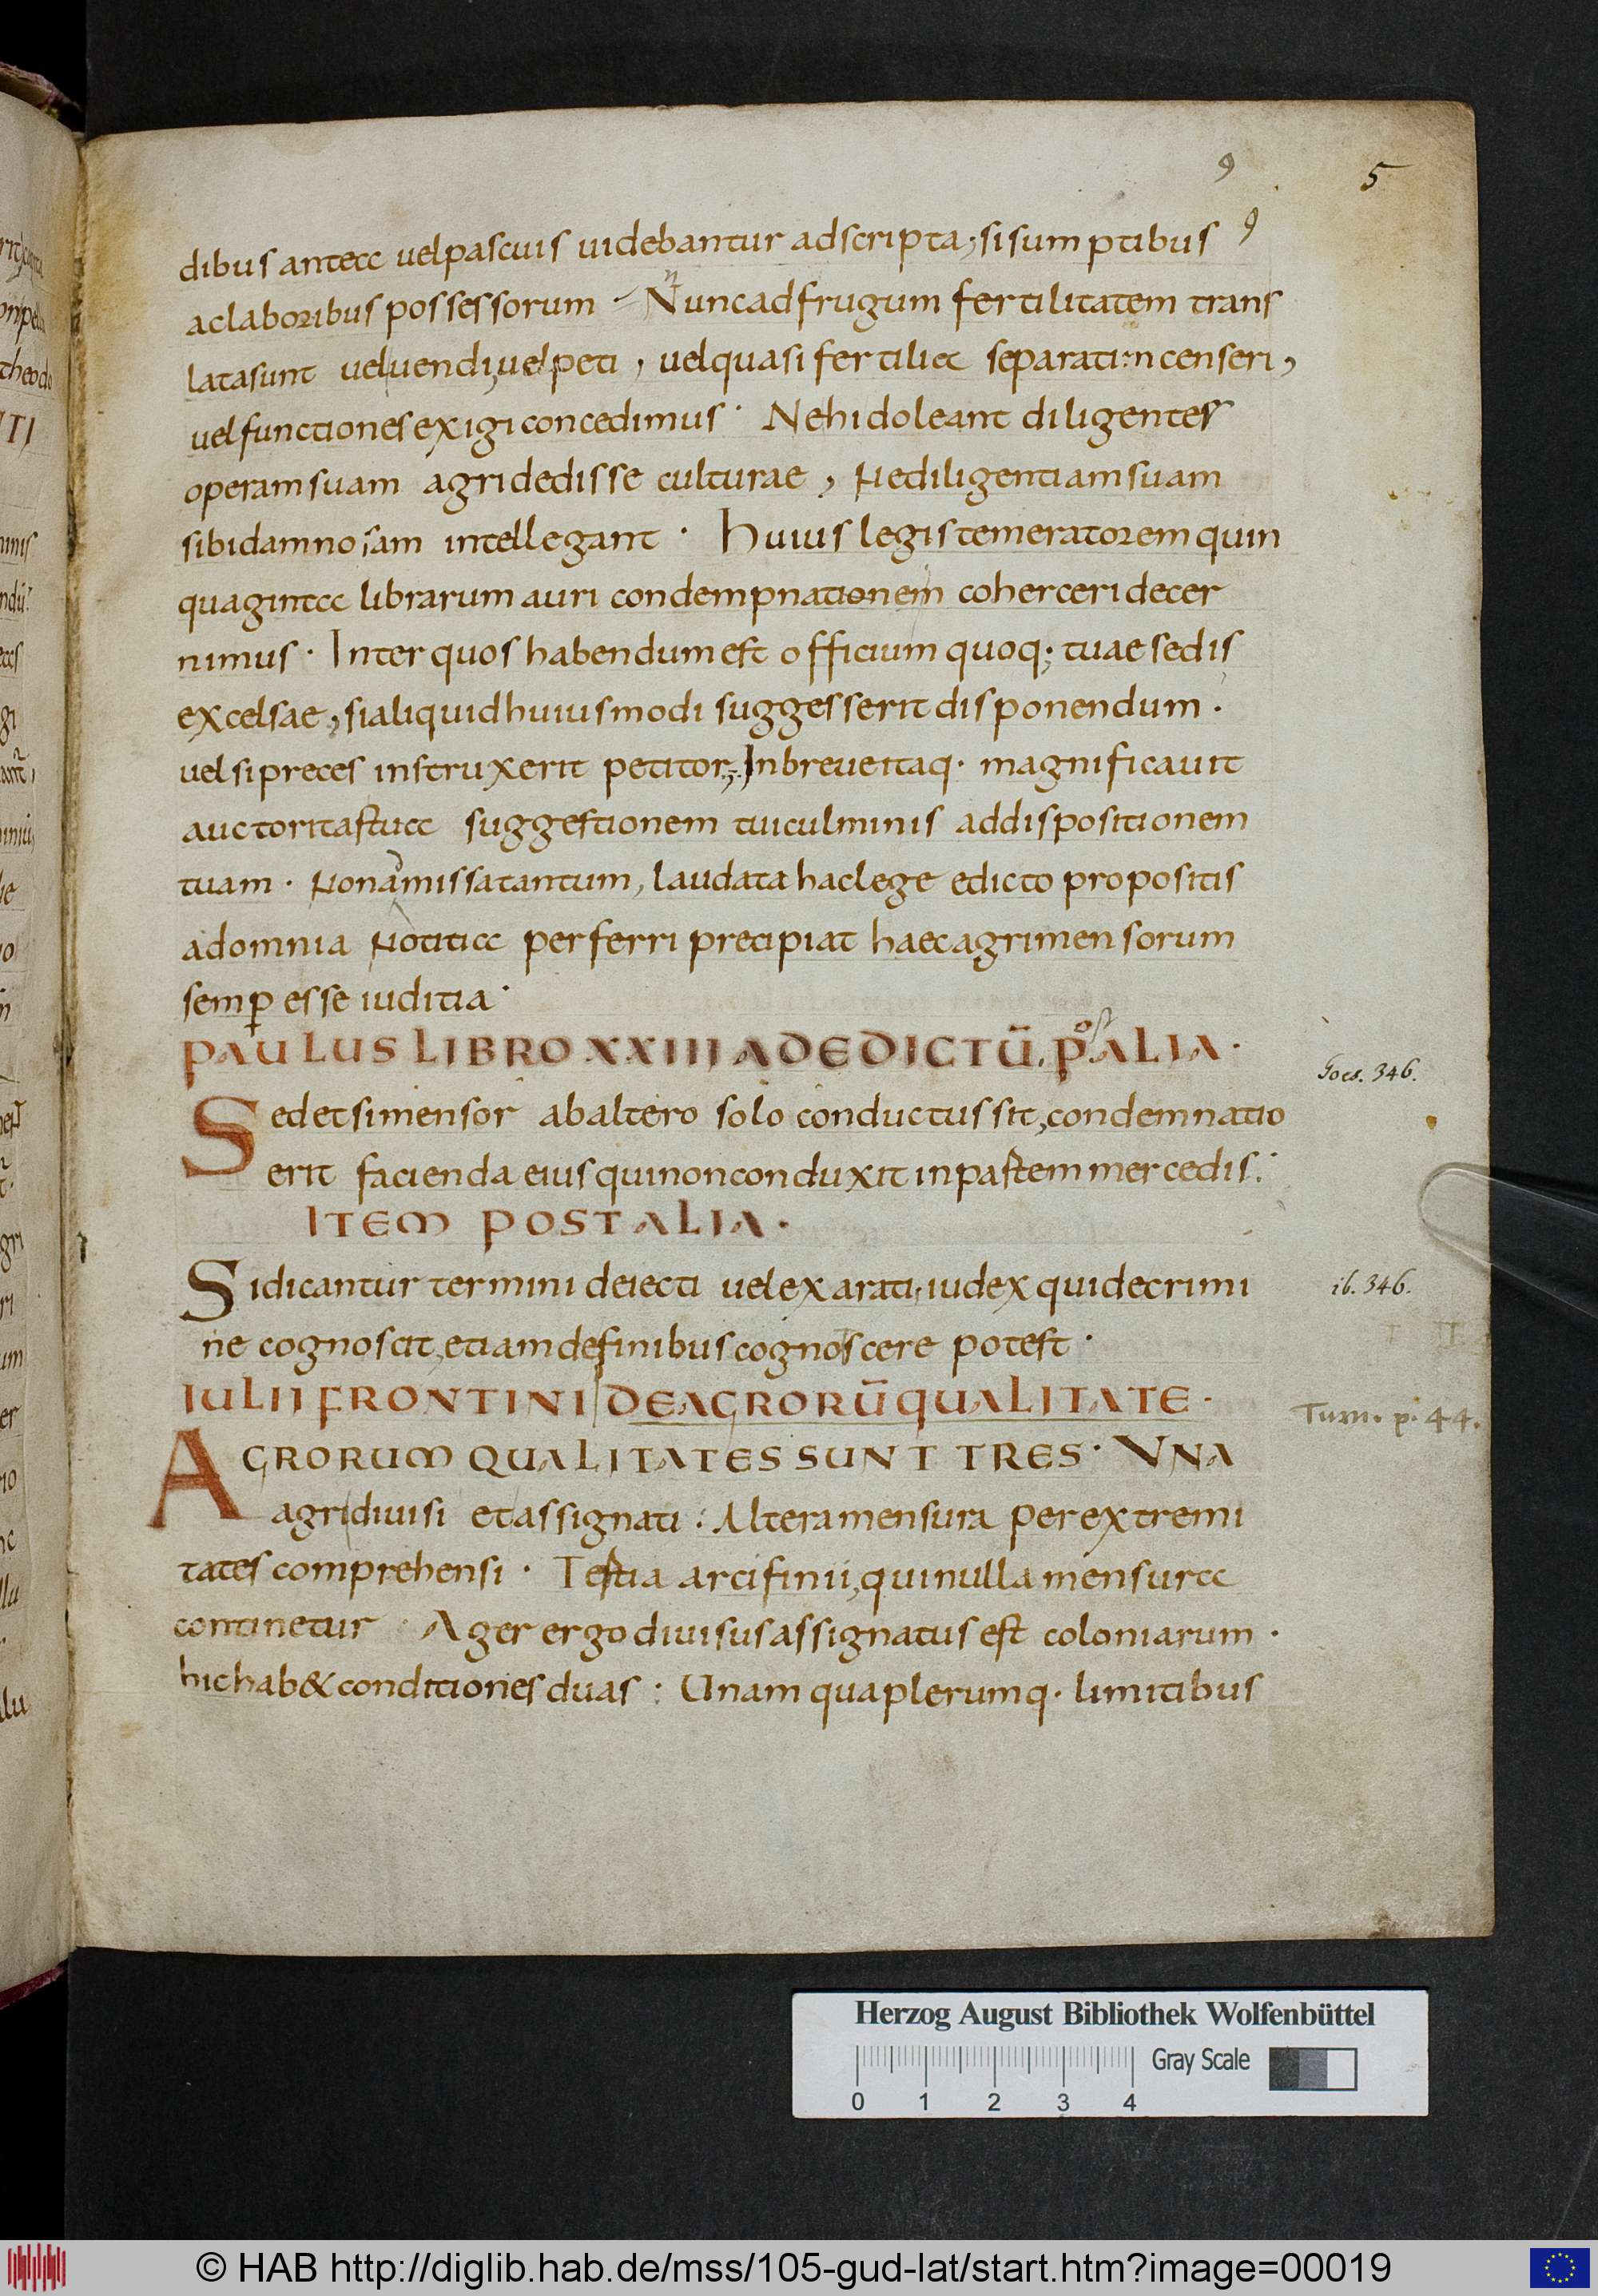 9
5
dibus antea uel pascuis uidebantur adscripta; si sumptibus 9
ac laboribus possessorum · Nunc ad frugum fertilitatem trans
lata sunt uel uendi, uel peti, uel quasi fertilia separatim censeri,
uel functiones exigi concedimus · Ne hi doleant diligentes
operam suam agri dedisse culturae, Ne diligentiam suam
sibi damnosam intellegant · Huius legis temeratorem quin
quaginta librarum auri condempnationem coherceri decer
nimus · Inter quos habendum est officium quoq; tuae sedis
excelsae, si aliquid huiusmodi suggesserit disponendum ·
uel si preces instruxerit petitor; In breue itaq· magnificauit
auctoritas tua suggestionem tui culminis ad dispositionem
tuam · Non amissa tantum, laudata hac lege edicto propositis
ad omnia Notitia perferri precipiat haec agrimensorum
semp esse iuditia ·
PAULUS LIBRO XXIII AD EDICTŪ. POST ALIA ·
Sed et si mensor ab altero solo conductus sit, condemnatio
erit facienda eius qui non conduxit in partem mercedis.
ITEM POST ALIA ·
Si dicantur termini deiecti uel exarati, iudex qui de crimi
ne cognoscit, etiam de finibus cognoscere potest ·
IULII FRONTINI DE AGRORŪ QUALITATE ·
AGRORUM QUALITATES SUNT TRES · VNA
agri diuisi et assignati : Altera mensura per extremi
tates comprehensi · Tertia arcifinii, qui nulla mensura
continetur · Ager ergo diuisus assignatus est coloniarum ·
hic hab& conditiones duas : Unam qua plerumq· limitibus
Goes. 346.
ib. 346.
Turn. p. 44.
Herzog August Bibliothek Wolfenbüttel
Gray Scale
0 1 2 3 4
© HAB http://diglib.hab.de/mss/105-gud-lat/start.htm?image=00019